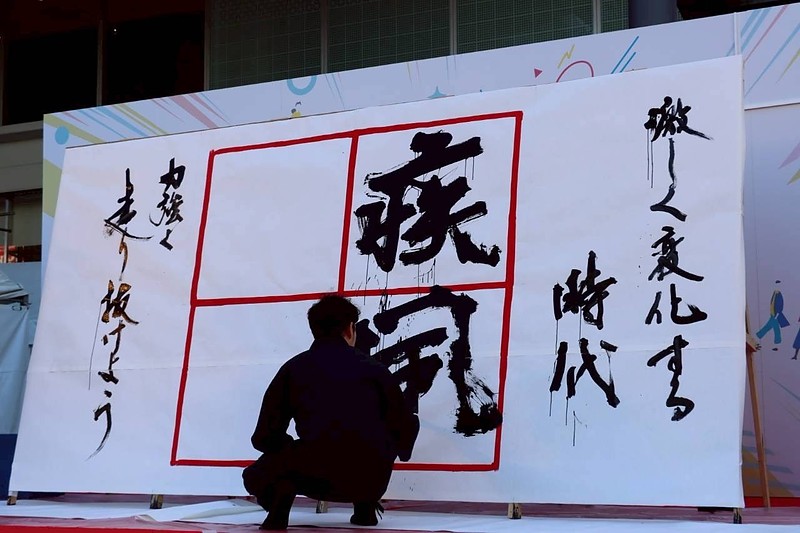 激しく変化する
時代
疾
力強く
走り抜けよう